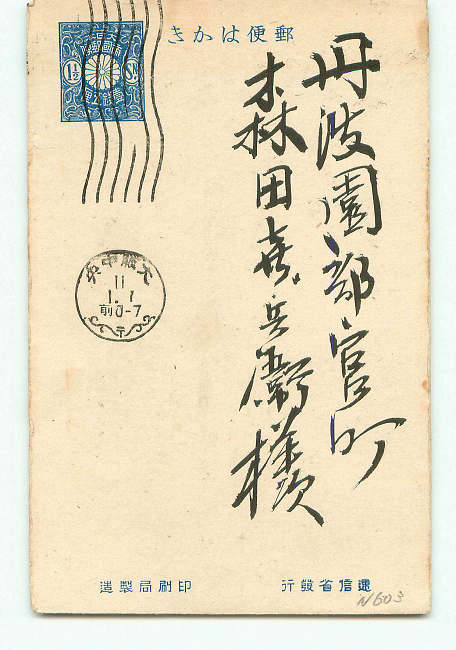 郵便はかき
1½ Sn
丹波園部宮町
森田喜兵衛様
大阪中央
11
1.1
前0-7
遞信省發行
印刷局製造
N603